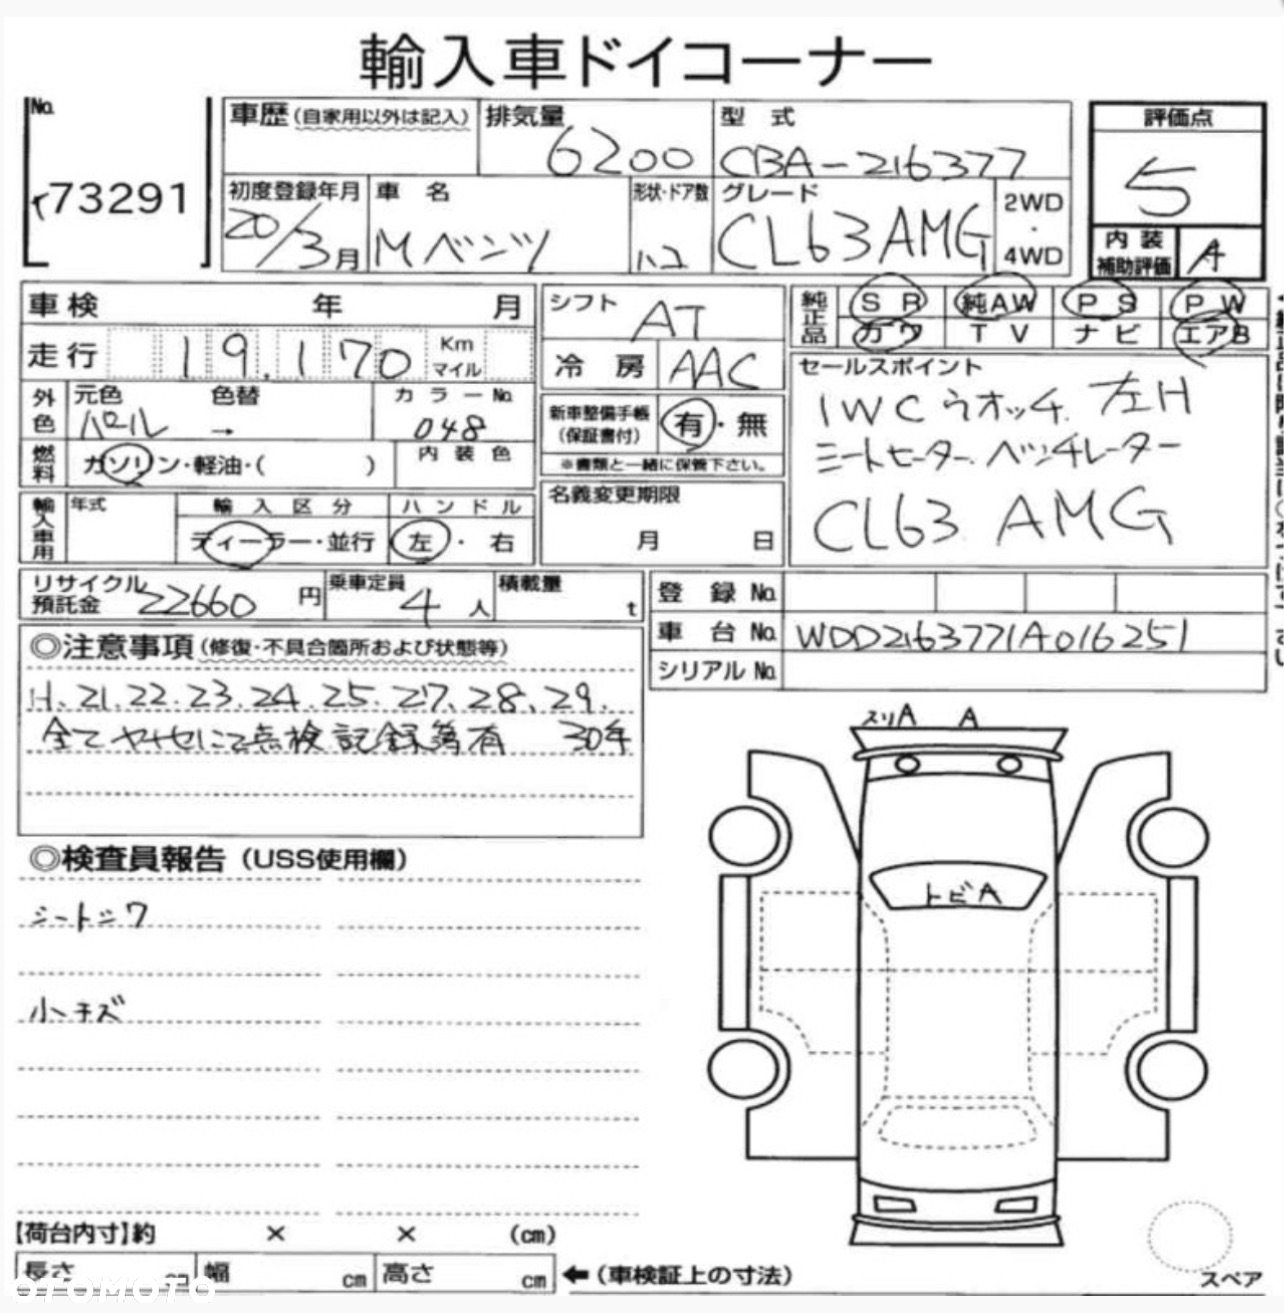 輸入車ドイコーナー
No.
73291
車歴(自家用以外は記入)
排気量
6200
型式
CBA-216377
評価点
5
初度登録年月
20/3月
車名
Mベンツ
形状・ドア数
ハコ
グレード
CL63AMG
2WD
・
4WD
内装
補助評価
A
車検 年 月
走行
19,170
Km
マイル
外色
元色 色替
パール →
カラーNo.
048
燃料
ガソリン・軽油・( )
内装色
輸入車用
年式
輸入区分
ディーラー・並行
ハンドル
左・右
シフト
AT
冷房
AAC
新車整備手帳
(保証書付)
有・無
※書類と一緒に保管下さい。
名義変更期限
月 日
純正品
SR 純AW PS PW
カワ TV ナビ エアB
セールスポイント
IWCウオッチ. 左H
シートヒーター. ベンチレーター
CL63 AMG
リサイクル
預託金
22660円
乗車定員
4人
積載量
t
登録No.
車台No.
WDD2163771A016251
シリアルNo.
◎注意事項(修復・不具合箇所および状態等)
H.21.22.23.24.25.27.28.29.
全てヤナセにて点検記録簿有 30年
◎検査員報告(USS使用欄)
シートシワ
小キズ
スリA A
トビA
【荷台内寸】約 × × (cm)
長さ cm 幅 cm 高さ cm
←(車検証上の寸法)
スペア
OTOMOTO